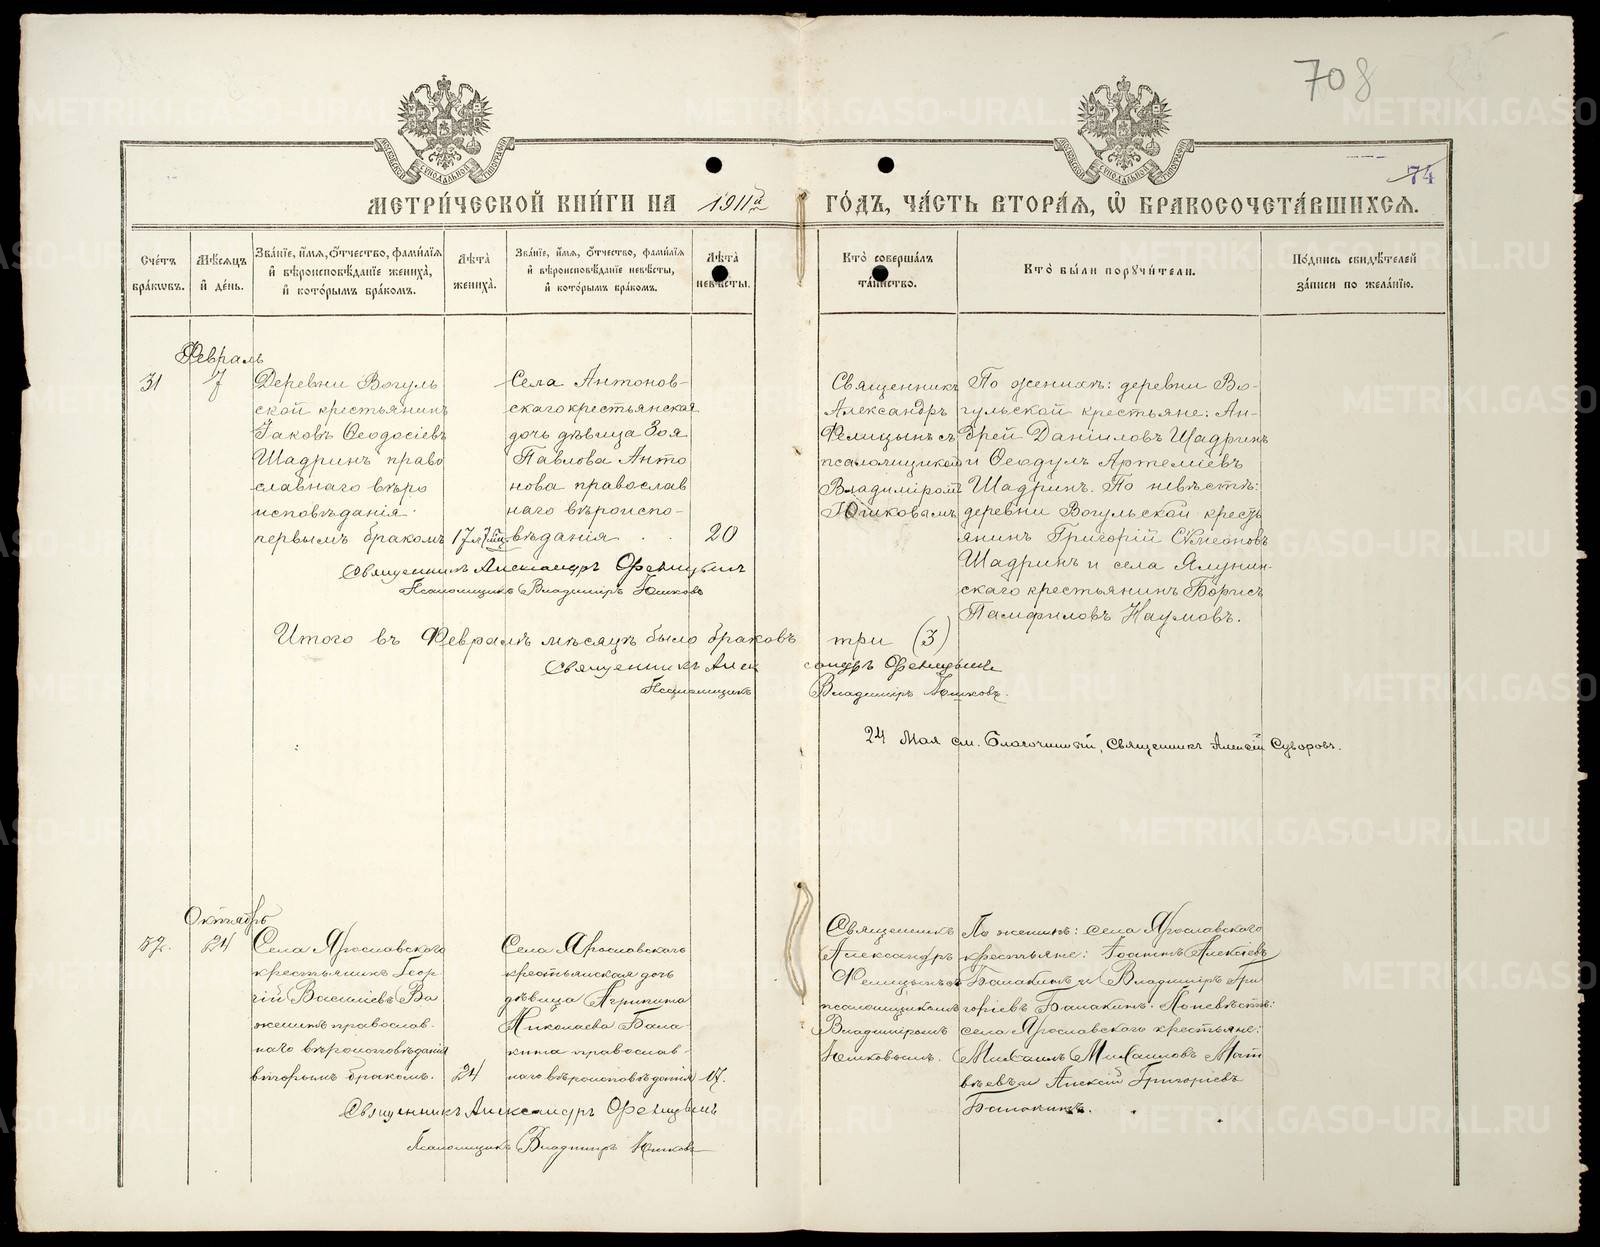 708
74
МЕТРИ́ЧЕСКОЙ КНИ́ГИ НА 1911й ГО́ДЪ, ЧА́СТЬ ВТОРА́Я, Ѽ БРАКОСОЧЕТА́ВШИХСЯ.
Сче́тъ
бра́кωвъ.
Мѣ́сяцъ
и҆ де́нь.
Зва́нїе, и҆́мѧ, ѻ҆́тчество, фами́лїѧ
и҆ вѣроисповѣ́данїе жениха̀,
и҆ кото́рымъ бра́комъ.
Лѣ́та
жениха̀.
Зва́нїе, и҆́мѧ, ѻ҆́тчество, фами́лїѧ
и҆ вѣроисповѣ́данїе невѣ́сты,
и҆ кото́рымъ бра́комъ.
Лѣ́та
невѣ́сты.
Кто̀ соверша́лъ
та́инство.
Кто̀ бы́ли порꙋчи́тели.
По́дпись свидѣ́телей
за́писи по жела́нїю.
Февраль
31
7
Деревни Вогуль
ской крестьянинъ
Іаковъ Ѳеодосіевъ
Шадринъ право
славнаго вѣро
исповѣданія
первымъ бракомъ
17 л. 7 мц.
Села Антонов-
скаго крестьянская
дочь дѣвица Зоя
Павлова Анто
нова православ
наго вѣроиспо-
вѣданія
20
Священникъ
Александръ
Фелицынъ съ
псаломщикомъ
Владиміромъ
Юшковымъ
По женихѣ: деревни Во-
гульской крестьяне: Ан-
дрей Даніиловъ Шадринъ
и Ѳеодулъ Артеміевъ
Шадринъ. По невѣстѣ:
деревни Вогульской кресть
янинъ Григорій Сѵмеоновъ
Шадринъ и села Ялунин-
скаго крестьянинъ Борисъ
Памфиловъ Наумовъ.
Священникъ Александръ Фелицынъ
Псаломщикъ Владиміръ Юшковъ
Итого въ Февралѣ мѣсяцѣ было браковъ три (3)
Священникъ Александръ Фелицынъ
Псаломщикъ Владиміръ Юшковъ.
24 Мая см. Благочинный, Священникъ Алексій Суворовъ.
Октябрь
52.
24
Села Ярославскаго
крестьянинъ Геор
гій Василіевъ Ва
женинъ православ-
наго вѣроисповѣданія
вторымъ бракомъ.
24
Села Ярославскаго
крестьянская дочь
дѣвица Агрипина
Николаева Бала-
кина православ-
наго вѣроисповѣданія
17.
Священникъ
Александръ
Фелицынъ съ
псаломщикомъ
Владиміромъ
Юшковымъ.
По женихѣ: села Ярославскаго
крестьяне: Іоаннъ Алексіевъ
Балакинъ и Владиміръ Гри
горіевъ Балакинъ. По невѣстѣ:
села Ярославскаго крестьяне:
Михаилъ Михаиловъ Мат
вѣевъ и Алексій Григоріевъ
Балакинъ.
Священникъ Александръ Фелицынъ
Псаломщикъ Владиміръ Юшковъ